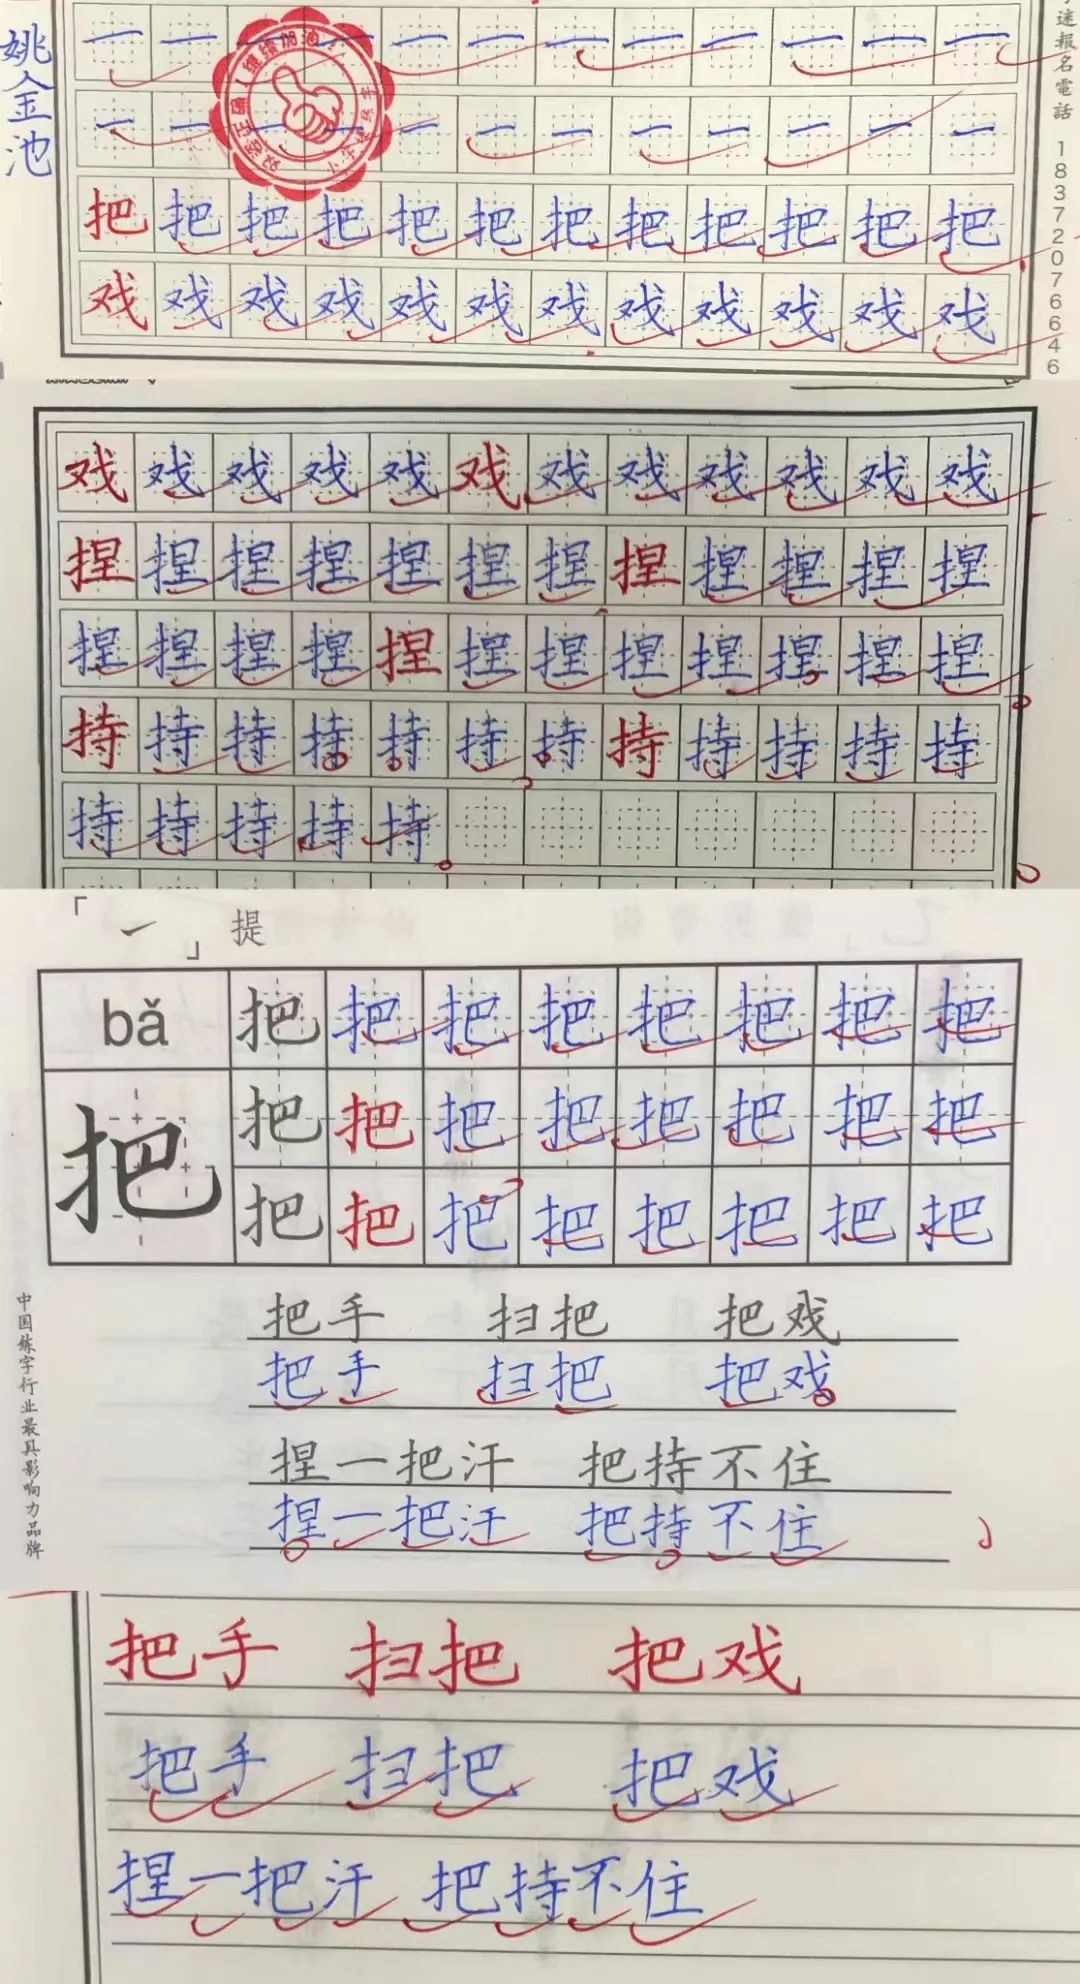 姚金池
一 一 一 一 一 一 一 一 一 一 一 一
一 一 一 一 一 一 一 一 一 一 一 一
把 把 把 把 把 把 把 把 把 把 把 把
戏 戏 戏 戏 戏 戏 戏 戏 戏 戏 戏 戏
迷報名電話 18372076646
戏 戏 戏 戏 戏 戏 戏 戏 戏 戏 戏 戏
捏 捏 捏 捏 捏 捏 捏 捏 捏 捏 捏 捏
捏 捏 捏 捏 捏 捏 捏 捏 捏 捏 捏 捏
持 持 持 持 持 持 持 持 持 持 持 持
持 持 持 持 持
「㇀」提
bǎ 把 把 把 把 把 把 把 把
把 把 把 把 把 把 把 把 把
把 把 把 把 把 把 把 把
把手 扫把 把戏
把手 扫把 把戏
捏一把汗 把持不住
捏一把汗 把持不住
中国练字行业最具影响力品牌
把手 扫把 把戏
把手 扫把 把戏
捏一把汗 把持不住